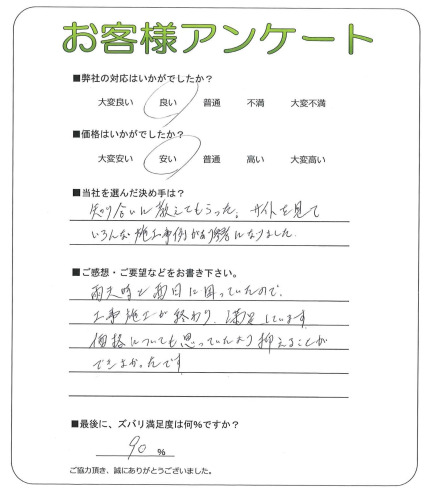 お客様アンケート
■弊社の対応はいかがでしたか？
大変良い 良い 普通 不満 大変不満
■価格はいかがでしたか？
大変安い 安い 普通 高い 大変高い
■当社を選んだ決め手は？
知り合いに教えてもらった。サイトを見て
いろんな施工事例があり参考になりました。
■ご感想・ご要望などをお書き下さい。
雨天時と西日に困っていたので、
工事施工が終わり、満足しています
価格についても思っていたより抑えることが
でき よかったです
■最後に、ズバリ満足度は何％ですか？
90 ％
ご協力頂き、誠にありがとうございました。